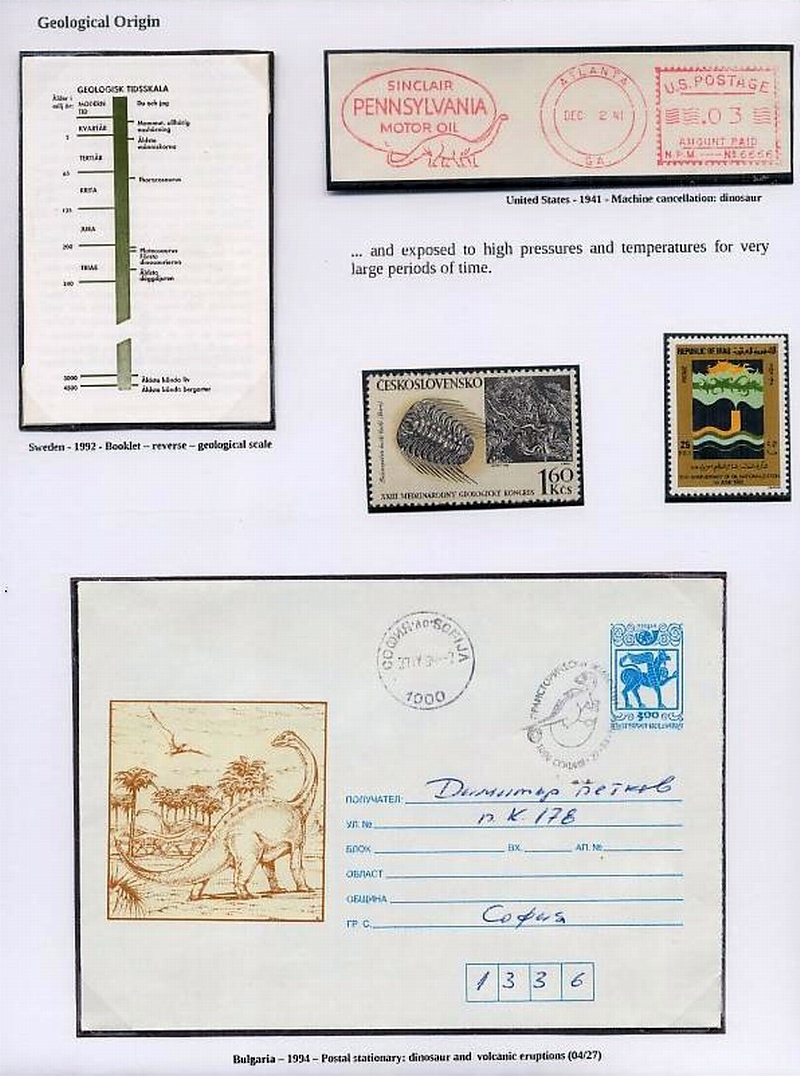 Geological Origin
GEOLOGISK TIDSSKALA
Ålder i
milj år:
MODERN
TID
Du och jag
KVARTÄR
Mammut, ullhårig
noshörning
Äldsta
människorna
TERTIÄR
65
Thoracosaurus
KRITA
135
JURA
200
Plateosaurus
Första
dinosaurierna
TRIAS
Äldsta
däggdjuren
240
3000
Äldsta kända liv
4000
Äldsta kända bergarter
Sweden - 1992 - Booklet – reverse – geological scale
SINCLAIR
PENNSYLVANIA
MOTOR OIL
ATLANTA
DEC 2 41
GA.
U.S. POSTAGE
.03
AMOUNT PAID
N.P.M. No 6656
United States - 1941 - Machine cancellation: dinosaur
... and exposed to high pressures and temperatures for very
large periods of time.
ČESKOSLOVENSKO
XXIII MEZINÁRODNÝ GEOLOGICKÝ KONGRES
1 60
Kčs
REPUBLIC OF IRAQ
25
СОФИЯ SOFIJA
1000
300
ПОЛУЧАТЕЛ: Димитър Петков
УЛ. № п.к. 178
БЛОК ВХ. АП. №
ОБЛАСТ
ОБЩИНА
ГР. С. София
1336
Bulgaria – 1994 – Postal stationary: dinosaur and volcanic eruptions (04/27)